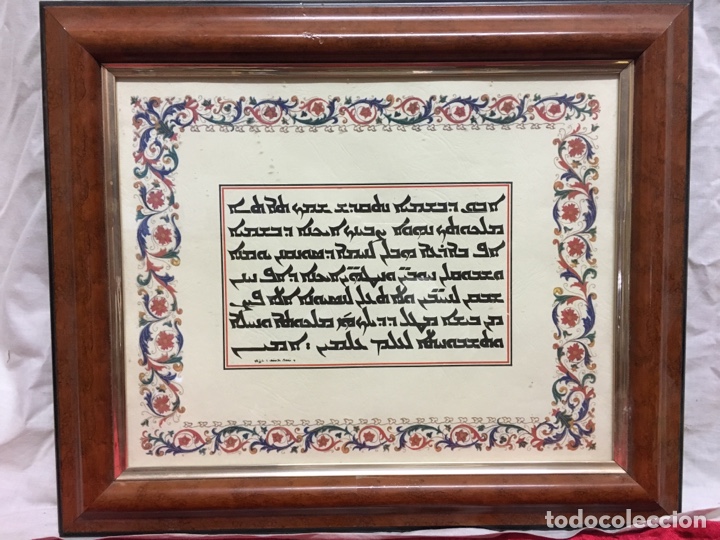 ܐܒܘܢ ܕܒܫܡܝܐ ܢܬܩܕܫ ܫܡܟ ܬܐܬܐ
ܡܠܟܘܬܟ ܢܗܘܐ ܨܒܝܢܟ ܐܝܟܢܐ ܕܒܫܡܝܐ
ܐܦ ܒܐܪܥܐ ܗܒ ܠܢ ܠܚܡܐ ܕܣܘܢܩܢܢ ܝܘܡܢܐ
ܘܫܒܘܩ ܠܢ ܚܘܒܝܢ ܘܚܛܗܝܢ ܐܝܟܢܐ ܕܐܦ ܚܢܢ
ܫܒܩܢ ܠܚܝܒܝܢ ܘܠܐ ܬܥܠܢ ܠܢܣܝܘܢܐ ܐܠܐ ܦܨܢ
ܡܢ ܒܝܫܐ ܡܛܠ ܕܕܝܠܟ ܗܝ ܡܠܟܘܬܐ ܘܚܝܠܐ
ܘܬܫܒܘܚܬܐ ܠܥܠܡ ܥܠܡܝܢ : ܐܡܝܢ
todocoleccion
todocoleccion.net